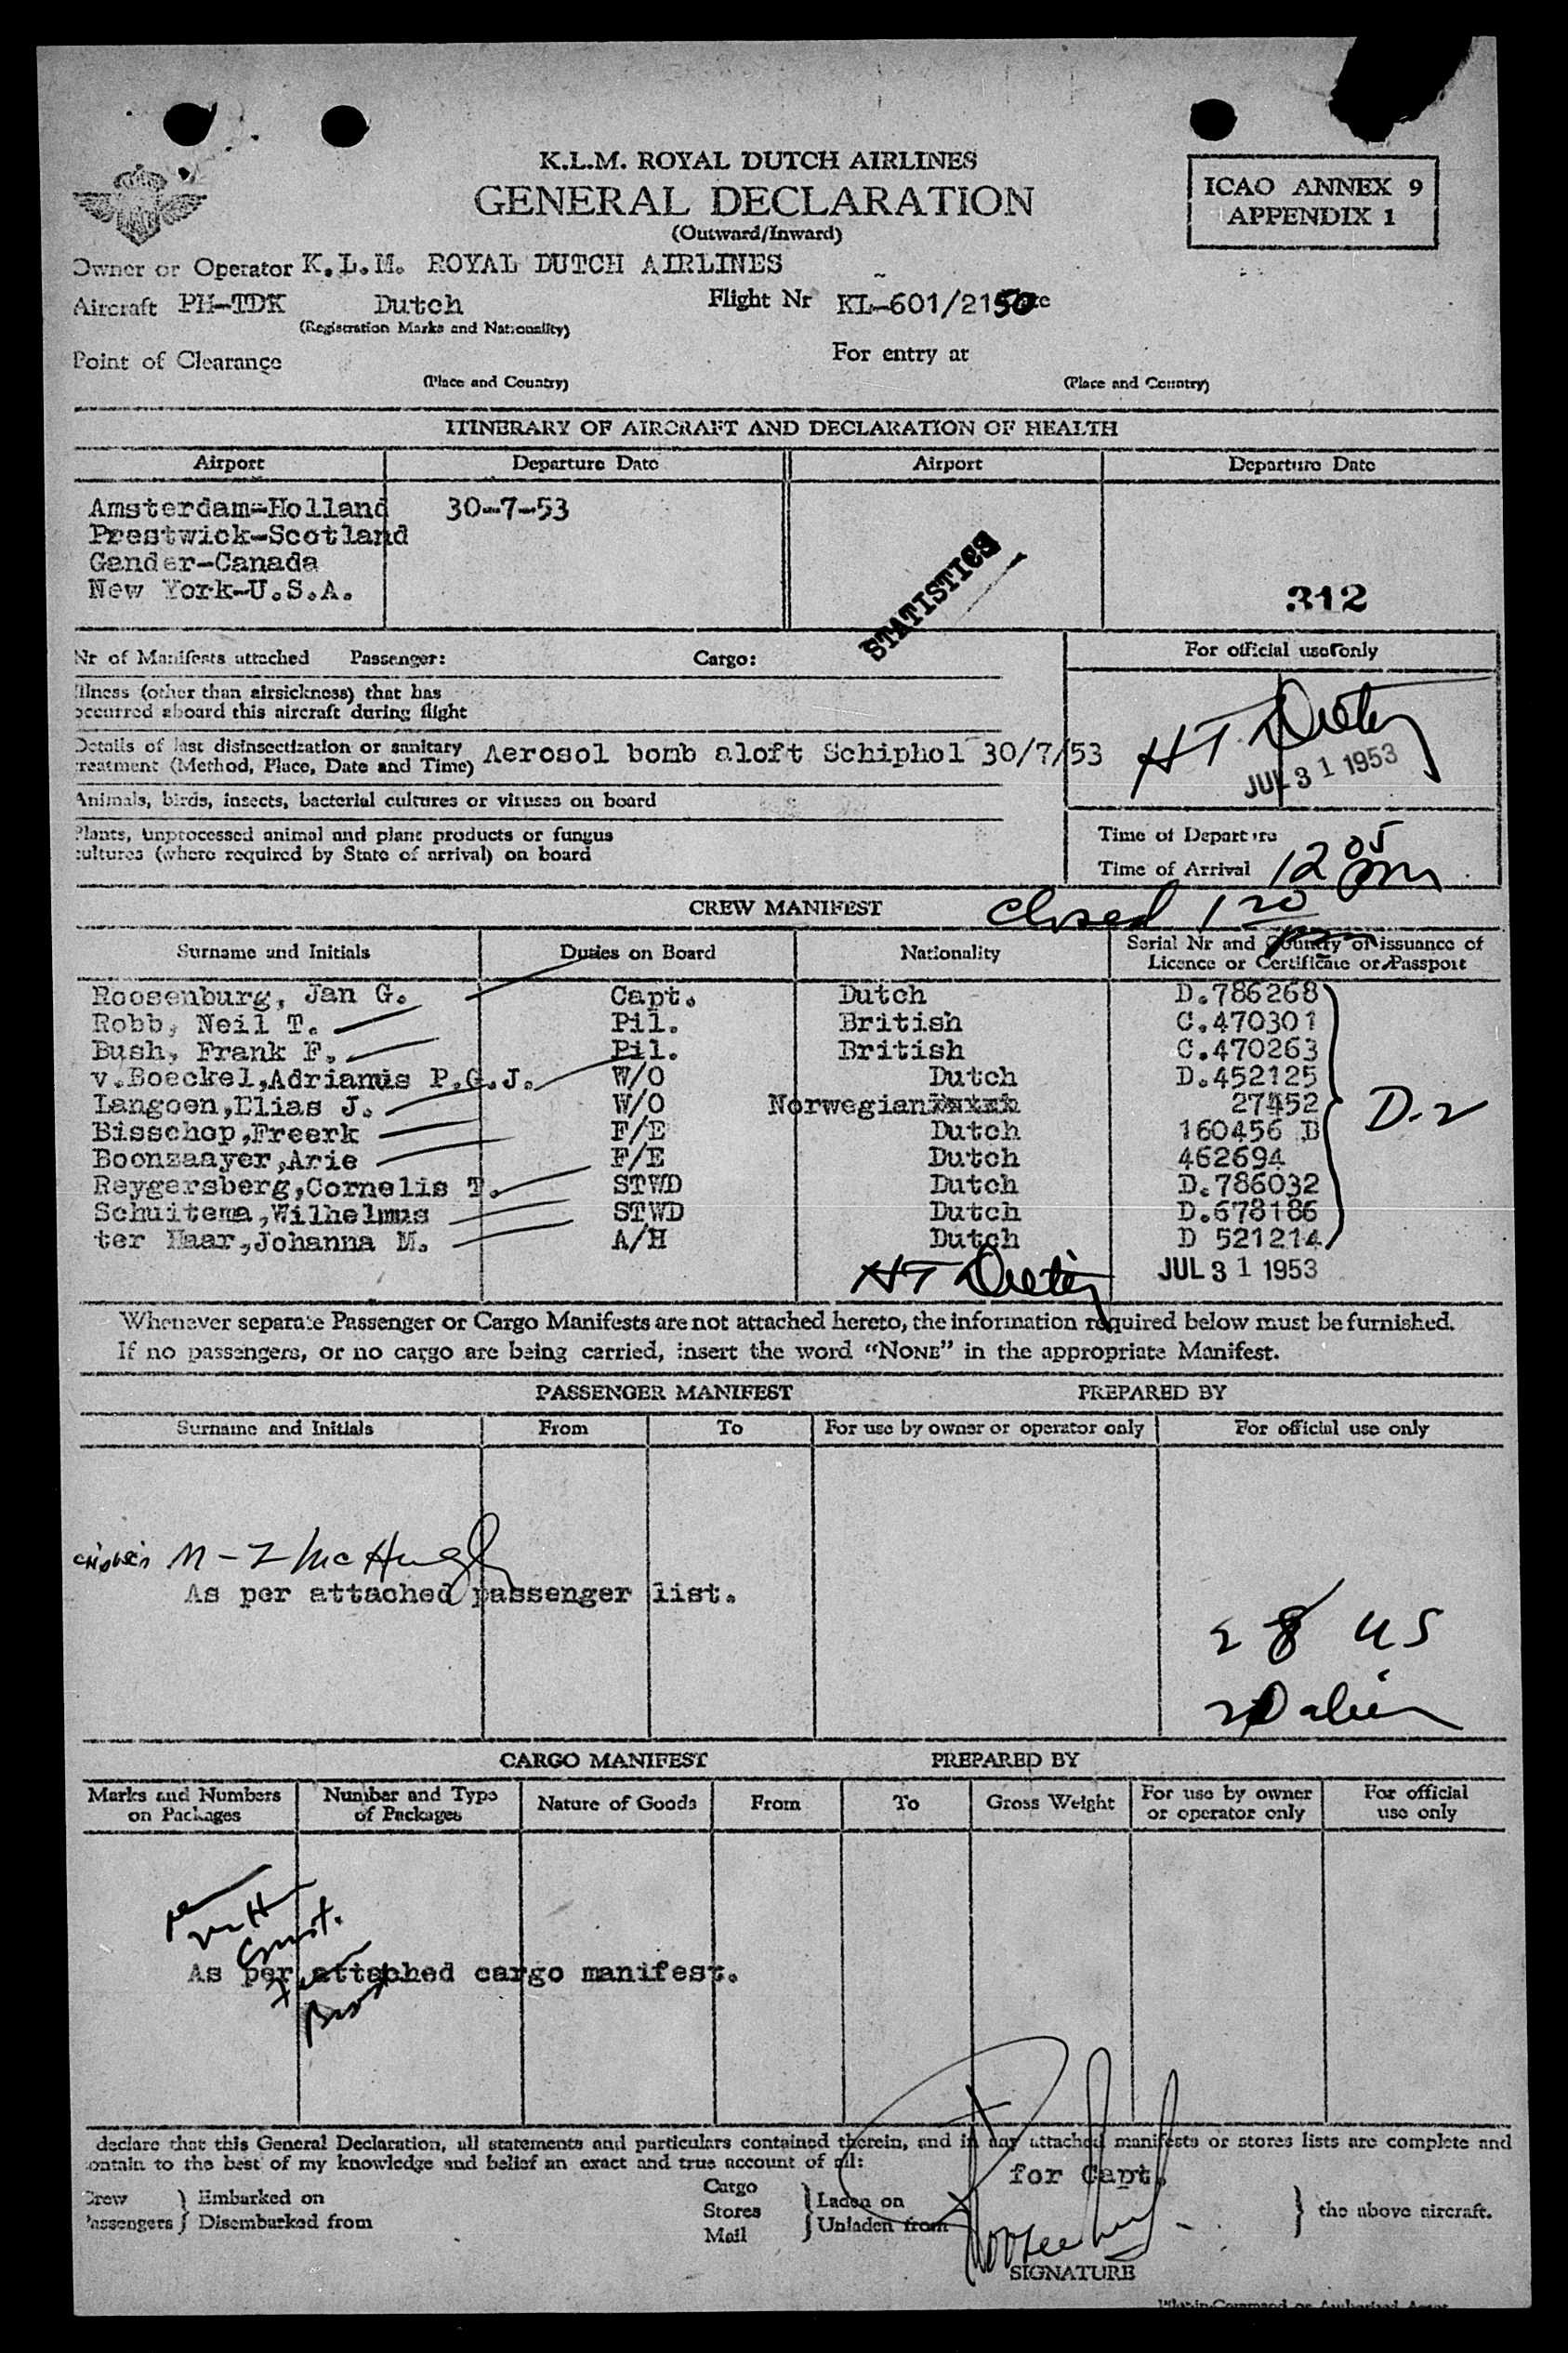 K.L.M. ROYAL DUTCH AIRLINES
GENERAL DECLARATION
(Outward/Inward)
ICAO ANNEX 9
APPENDIX 1
Owner or Operator K.L.M. ROYAL DUTCH AIRLINES
Aircraft PH-TDK Dutch Flight Nr KL-601/2150
(Registration Marks and Nationality)
Point of Clearance For entry at
(Place and Country) (Place and Country)
ITINERARY OF AIRCRAFT AND DECLARATION OF HEALTH
Airport Departure Date Airport Departure Date
Amsterdam-Holland 30-7-53
Prestwick-Scotland
Gander-Canada
New York-U.S.A.
STATISTICS
312
Nr of Manifests attached Passenger: Cargo:
For official use only
Illness (other than airsickness) that has
occurred aboard this aircraft during flight
Details of last disinsectization or sanitary
treatment (Method, Place, Date and Time) Aerosol bomb aloft Schiphol 30/7/53
HT
JUL 31 1953
Animals, birds, insects, bacterial cultures or viruses on board
Plants, unprocessed animal and plant products or fungus
cultures (where required by State of arrival) on board
Time of Departure
Time of Arrival 12 05 pm
closed 1 20
CREW MANIFEST
Surname and Initials Duties on Board Nationality Serial Nr and Country of issuance of
Licence or Certificate or Passport
Roosenburg, Jan G. Capt. Dutch D.786268
Robb, Neil T. Pil. British C.470301
Bush, Frank F. Pil. British C.470263
v.Boeckel,Adrianus P.G.J. W/O Dutch D.452125
Langoen,Elias J. W/O Norwegian 27452
D-2
Bisschop,Freerk F/E Dutch 160456 B
Boonzaayer,Arie F/E Dutch 462694
Reygersberg,Cornelis T. STWD Dutch D.786032
Schuitema,Wilhelmus STWD Dutch D.678186
ter Haar,Johanna M. A/H Dutch D 521214
HT
JUL 31 1953
Whenever separate Passenger or Cargo Manifests are not attached hereto, the information required below must be furnished.
If no passengers, or no cargo are being carried, insert the word "NONE" in the appropriate Manifest.
PASSENGER MANIFEST PREPARED BY
Surname and Initials From To For use by owner or operator only For official use only
M-Z McHugh
As per attached passenger list.
28 US
CARGO MANIFEST PREPARED BY
Marks and Numbers
on Packages
Number and Type
of Packages
Nature of Goods From To Gross Weight
For use by owner
or operator only
For official
use only
As per attached cargo manifest.
declare that this General Declaration, all statements and particulars contained therein, and in any attached manifests or stores lists are complete and
contain to the best of my knowledge and belief an exact and true account of all:
for Capt.
Crew
Passengers
Embarked on
Disembarked from
Cargo
Stores
Mail
Laden on
Unladen from
the above aircraft.
SIGNATURE